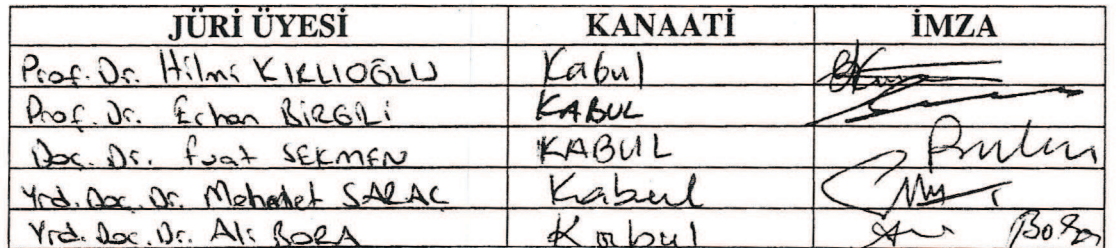 JÜRİ ÜYESİ KANAATİ İMZA
Prof. Dr. Hilmi KIRLIOĞLU Kabul
Prof. Dr. Erhan BİRGİLİ KABUL
Doç. Dr. Fuat SEKMEN KABUL
Yrd. Doç. Dr. Mehmet SARAÇ Kabul
Yrd. Doç. Dr. Ali BORA Kabul